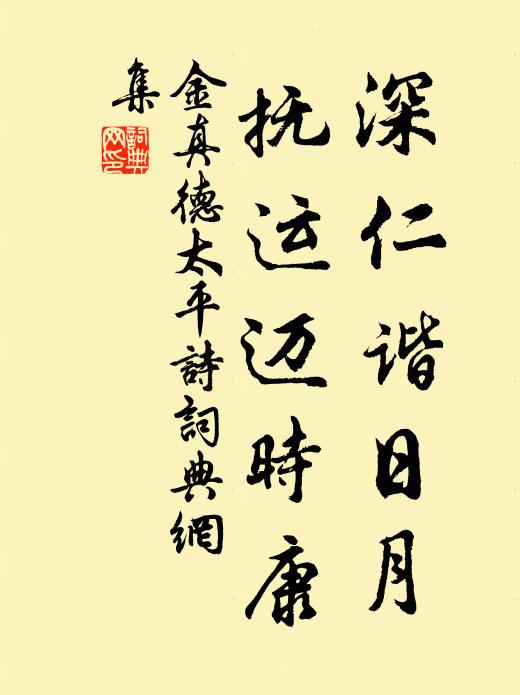 深仁谐日月
抚运迈時康
金真德太平詩詞典網
集
詞典网印